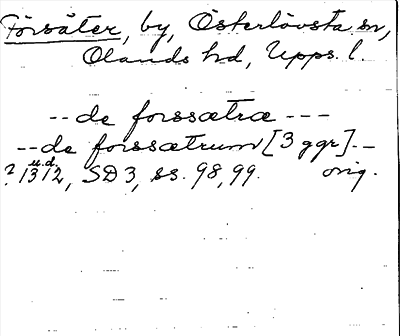 Forsäter, by, Österlövsta sn,
Olands hd, Upps. l.
-- de forssætræ ---
-- de forssætrum [3 ggr]. --
u.d.
? 1312, SD3, ss. 98, 99. orig.